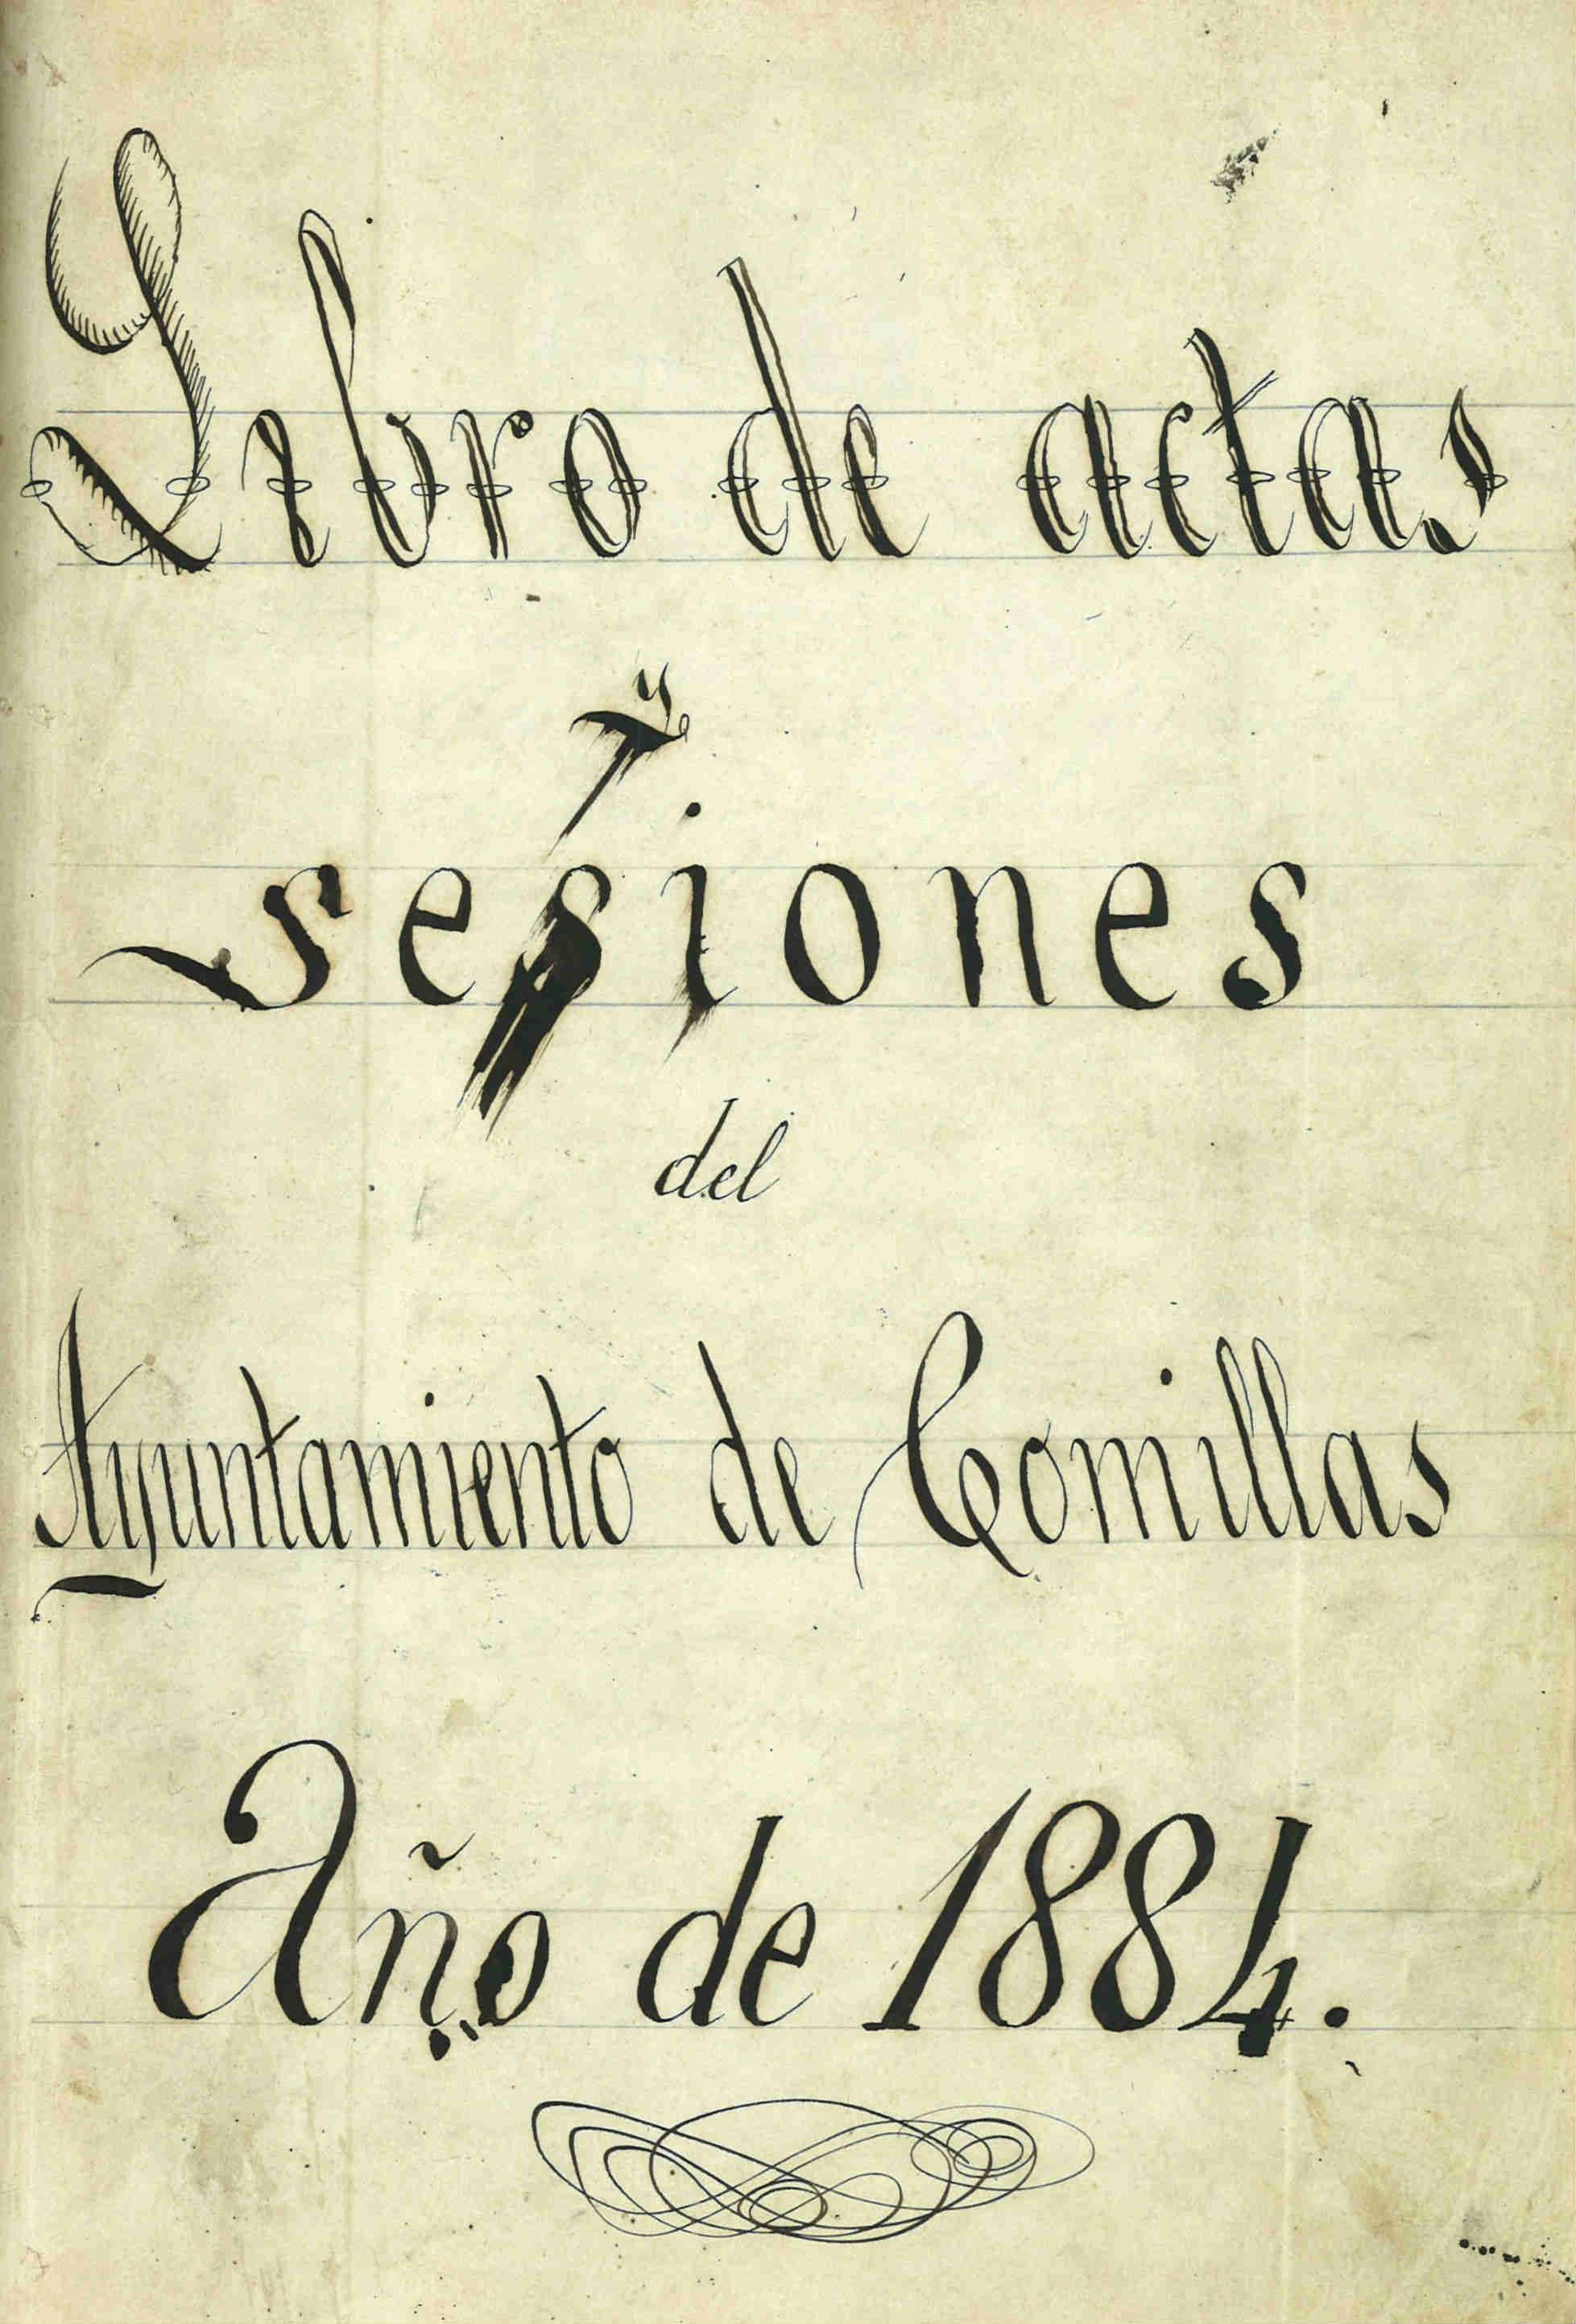 Libro de actas
y
sesiones
del
Ayuntamiento de Comillas
Año de 1884.